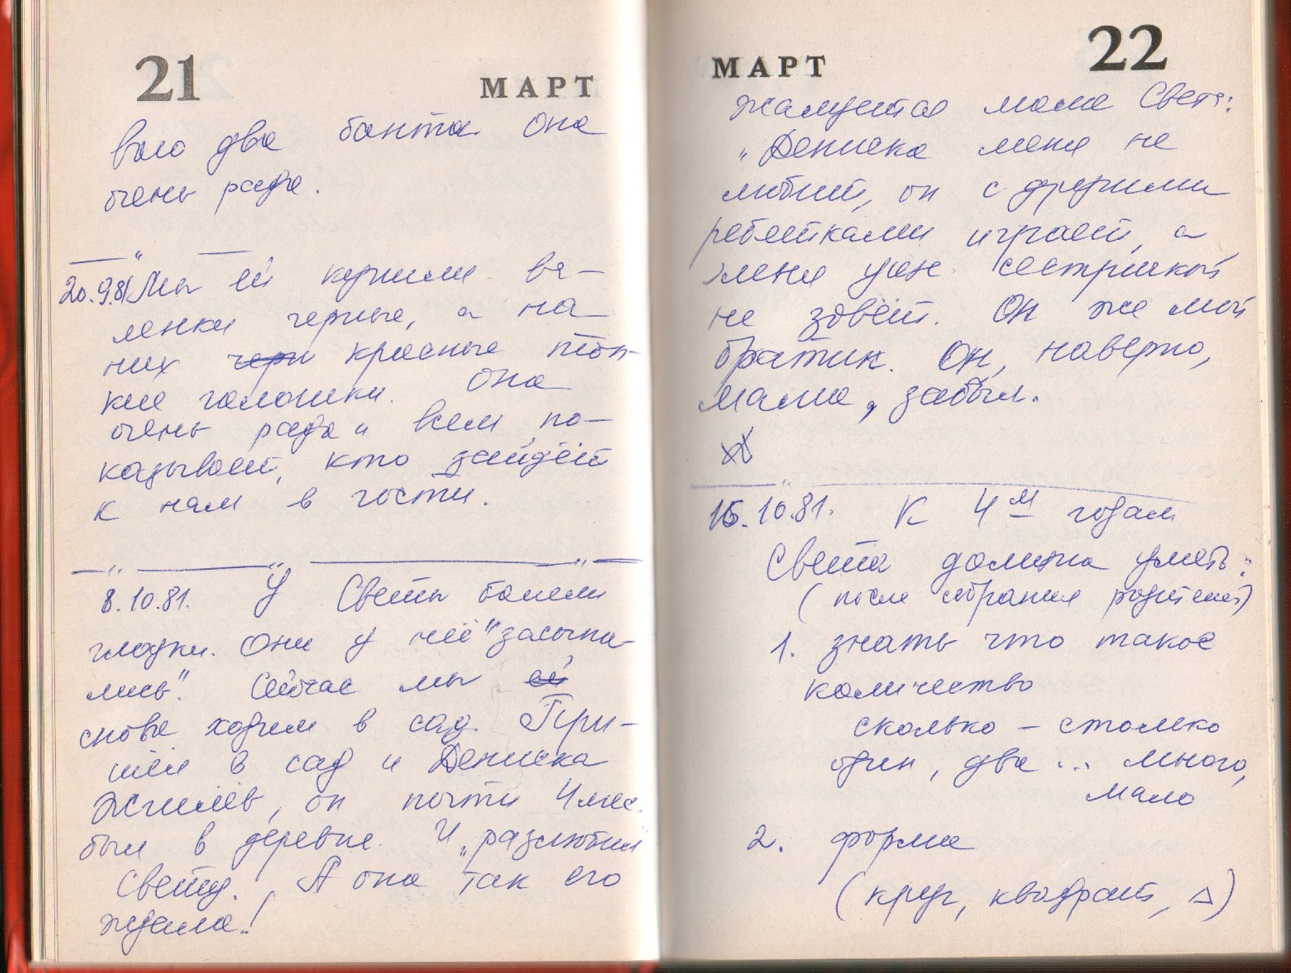 21 МАРТ
вого два банта. Она
очень рада.
20.9.81 Мы ей купили ва-
ленки черные, а на
них черн красные тон-
кие галошки. Она
очень рада и всем по-
казывает, кто зайдёт
к нам в гости.
8.10.81. У Светы болели
глазки. Они у неё "засыпа-
лись". Сейчас мы ей
снова ходим в сад. При-
шёл в сад и Дениска
Жгилёв, он почти 4 мес.
был в деревне. И "разлюбил
Свету. А она так его
ждала!
МАРТ 22
Жалуется мама Света:
"Дениска меня не
любит, он с другими
ребятками играет, а
меня уже сестричкой
не зовёт. Он же мой
братик. Он, наверно,
мама, забыл.
15.10.81. К 4м годам
Света должна уметь:
(после собрания родителей)
1. знать что такое
количество
сколько – столько
один, два ... много,
мало
2. форма
(круг, квадрат, Δ)